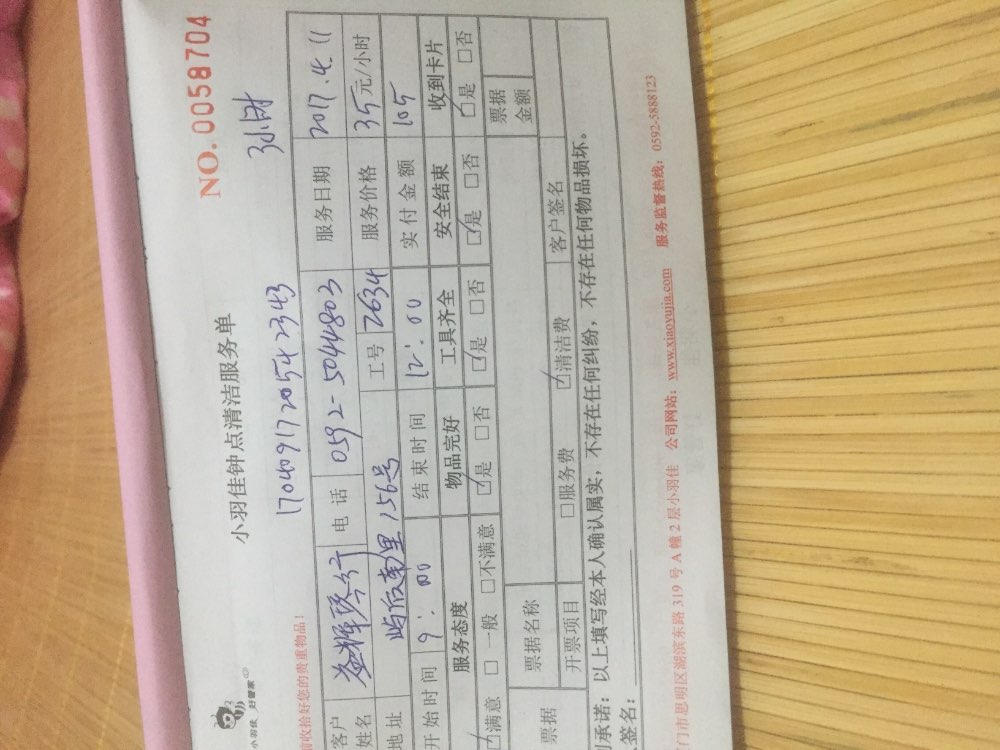 NO. 0058704
小羽佳 好管家
小羽佳钟点清洁服务单
3小时
收拾好您的贵重物品！
17040917205422343
客户姓名 电话 0592-5044803 服务日期 2017.4.11
地址 屿后南里156号 工号 2634 服务价格 35元/小时
开始时间 9:00 结束时间 12:00 实付金额 105
服务态度 物品完好 工具齐全 安全结束 收到卡片
☑满意 □一般 □不满意 ☑是 □否 ☑是 □否 ☑是 □否 ☑是 □否
票据 票据名称 票据金额
开票项目 □服务费 ☑清洁费 客户签名
承诺：以上填写经本人确认属实，不存在任何纠纷，不存在任何物品损坏。
签名：
门市思明区湖滨东路319号A幢2层小羽佳 公司网站：www.xiaoyujia.com 服务监督热线：0592-5888123